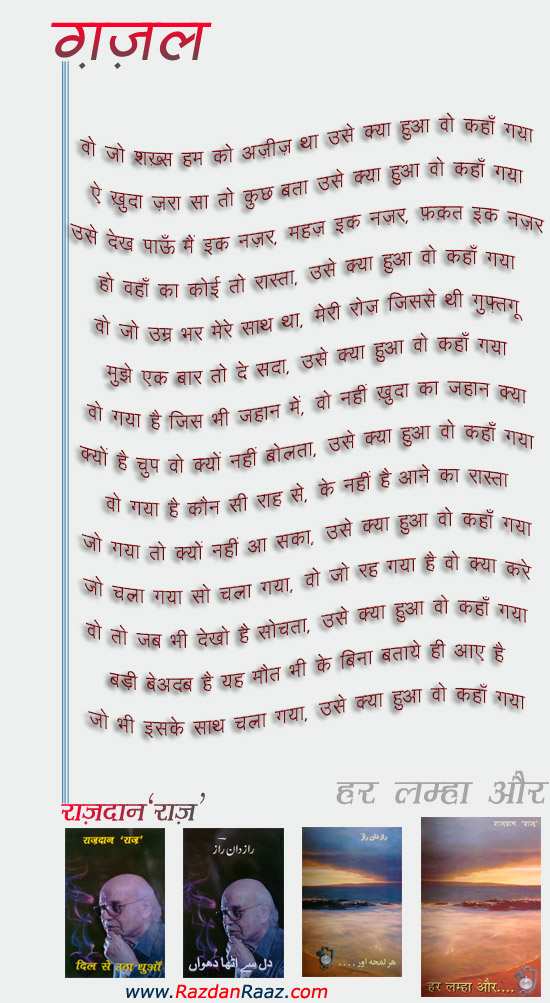 ग़ज़ल
वो जो शख्स हम को अज़ीज़ था उसे क्या हुआ वो कहाँ गया
ऐ खुदा ज़रा सा तो कुछ बता उसे क्या हुआ वो कहाँ गया
उसे देख पाऊँ मैं इक नज़र, महज़ इक नज़र, फ़क़त इक नज़र
हो वहाँ का कोई तो रास्ता, उसे क्या हुआ वो कहाँ गया
वो जो उम्र भर मेरे साथ था, मेरी रोज़ जिससे थी गुफ़्तगू
मुझे एक बार तो दे सदा, उसे क्या हुआ वो कहाँ गया
वो गया है जिस भी जहान में, वो नहीं खुदा का जहान क्या
क्यों है चुप वो क्यों नहीं बोलता, उसे क्या हुआ वो कहाँ गया
वो गया है कौन सी राह से, के नहीं है आने का रास्ता
जो गया तो क्यों नहीं आ सका, उसे क्या हुआ वो कहाँ गया
जो चला गया सो चला गया, वो जो रह गया है वो क्या करे
वो तो जब भी देखो है सोचता, उसे क्या हुआ वो कहाँ गया
बड़ी बेअदब है यह मौत भी के बिना बताये ही आए है
जो भी इसके साथ चला गया, उसे क्या हुआ वो कहाँ गया
राज़दान ‘राज़’
हर लम्हा और
राज़दान ‘राज़’
दिल से उठा धुआँ
رازدان رازؔ
دل سے اٹھا دھواں
رازدان راز
ہر لمحہ اور....
राज़दान ‘राज़’
हर लम्हा और....
www.RazdanRaaz.com